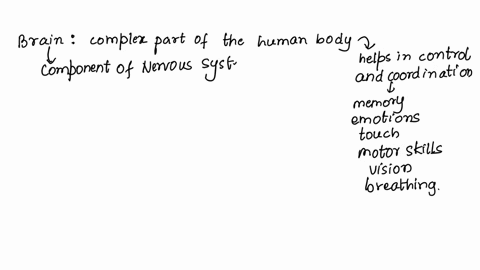 Brain: complex part of the human body
Component of Nervous Syst
helps in control
and coordination
memory
emotions
touch
motor skills
vision
breathing.